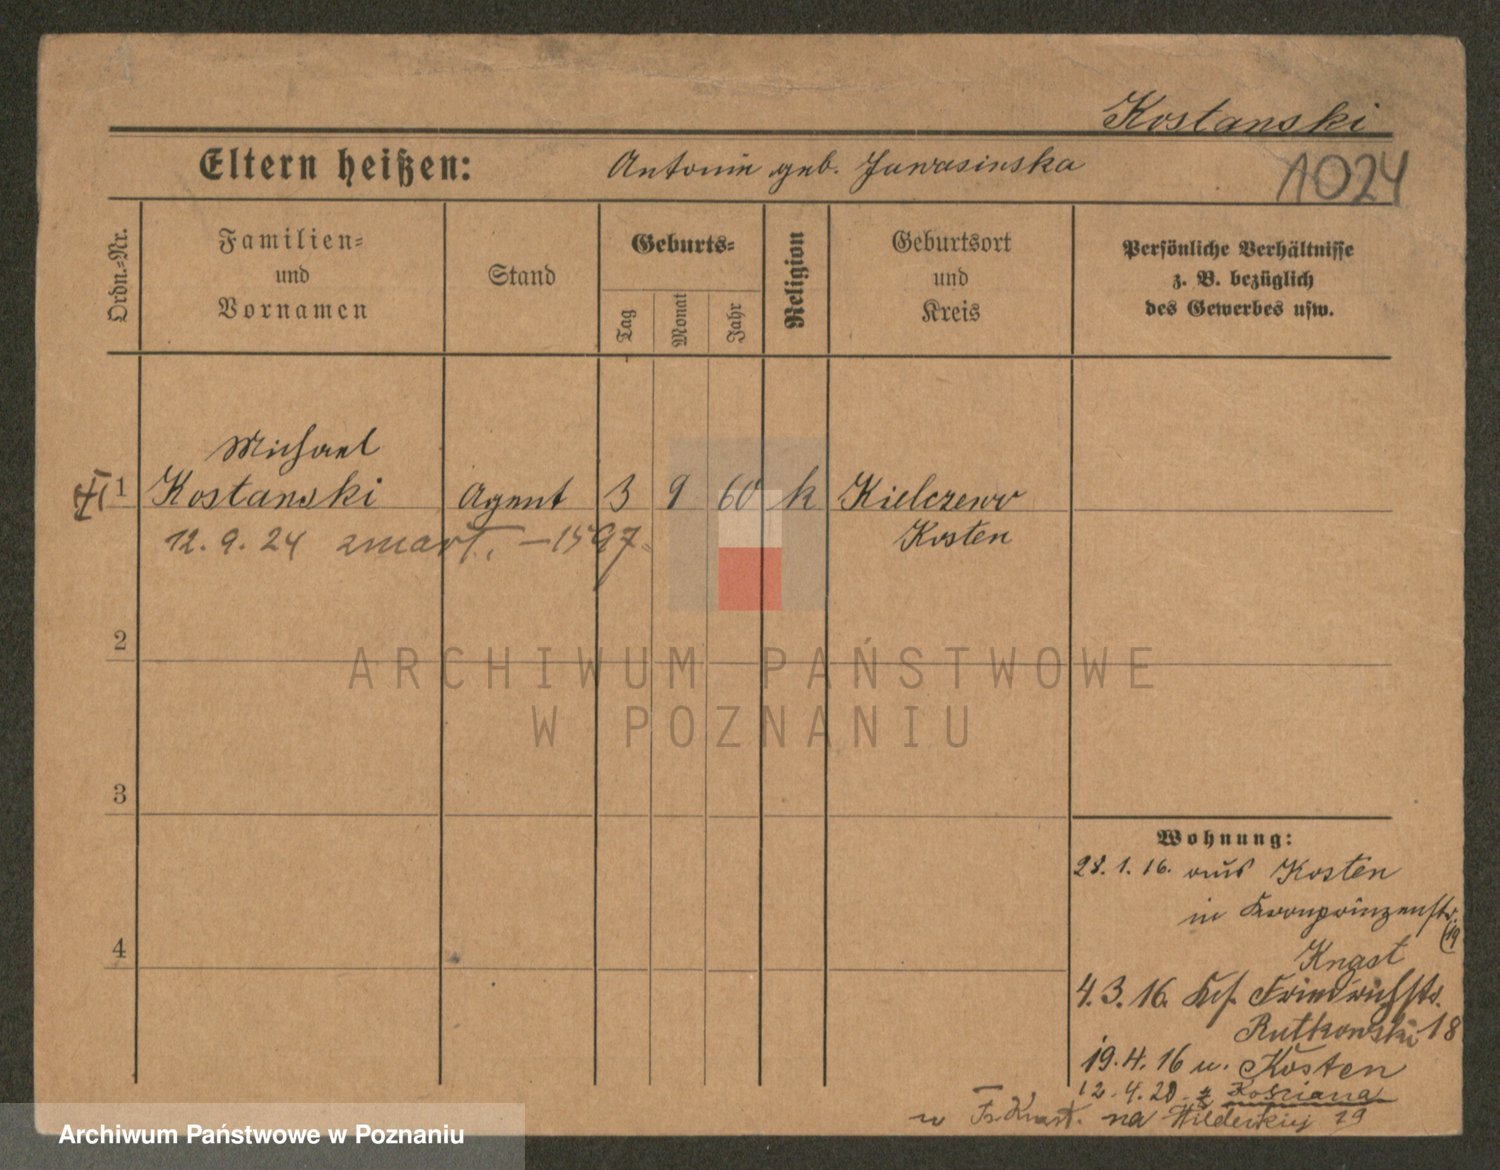 Kostanski
Eltern heißen: Antonie geb. Jawasinska
1024
Ordn.-Nr.
Familien-
und
Vornamen
Stand
Geburts-
Tag
Monat
Jahr
Religion
Geburtsort
und
Kreis
Persönliche Verhältnisse
z. B. bezüglich
des Gewerbes usw.
Michael
1 Kostanski Agent 3 9 60 k Kielczewo
Kosten
12. 9. 24 zmart. - 1597.
2
ARCHIWUM PAŃSTWOWE
W POZNANIU
3
4
Wohnung:
28. 1. 16. aus Kosten
in Kronprinzenstr.
19
Knast
4. 3. 16. Friedrichstr.
Rutkowski 18
19. 4. 16 n. Kosten
12. 4. 20. z Kościana
na Wilderkiej 19
w Fr. Knast.
Archiwum Państwowe w Poznaniu